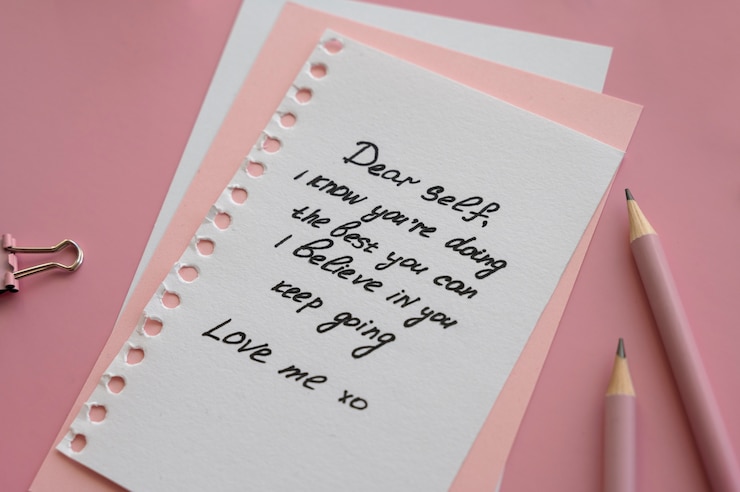 Dear self,
I know you're doing
the best you can
I believe in you
keep going
Love me xo